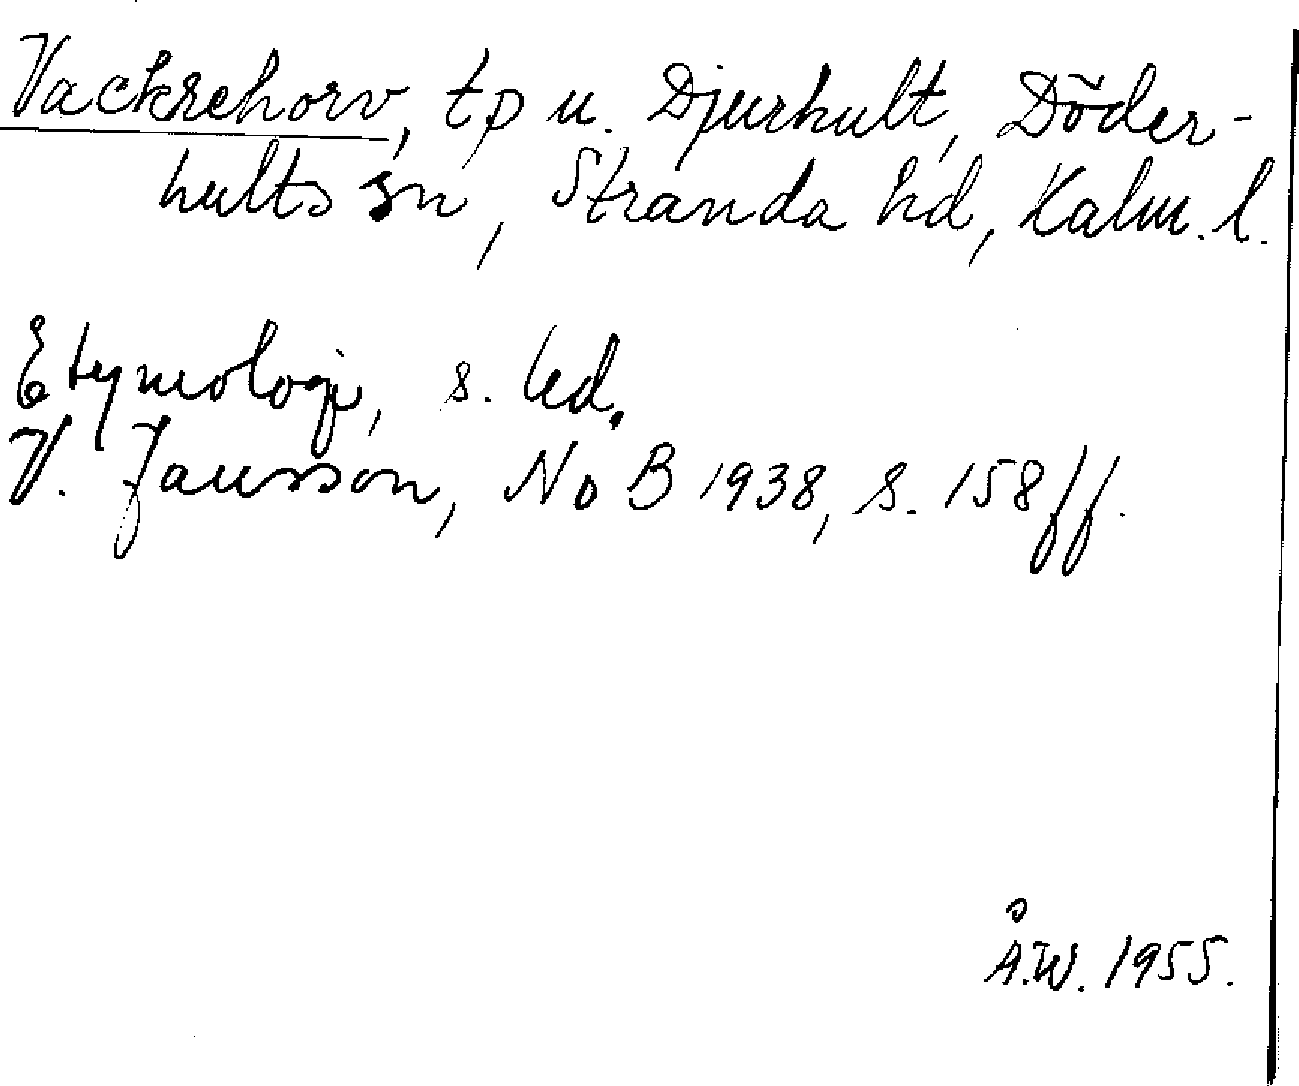 Vackrehorv, tp u. Djurhult, Döder-
hults sn, Stranda hd, Kalm. l.
Etymologi, s.
V. Jansson, NoB 1938, s. 158 ff.
Å.W. 1955.